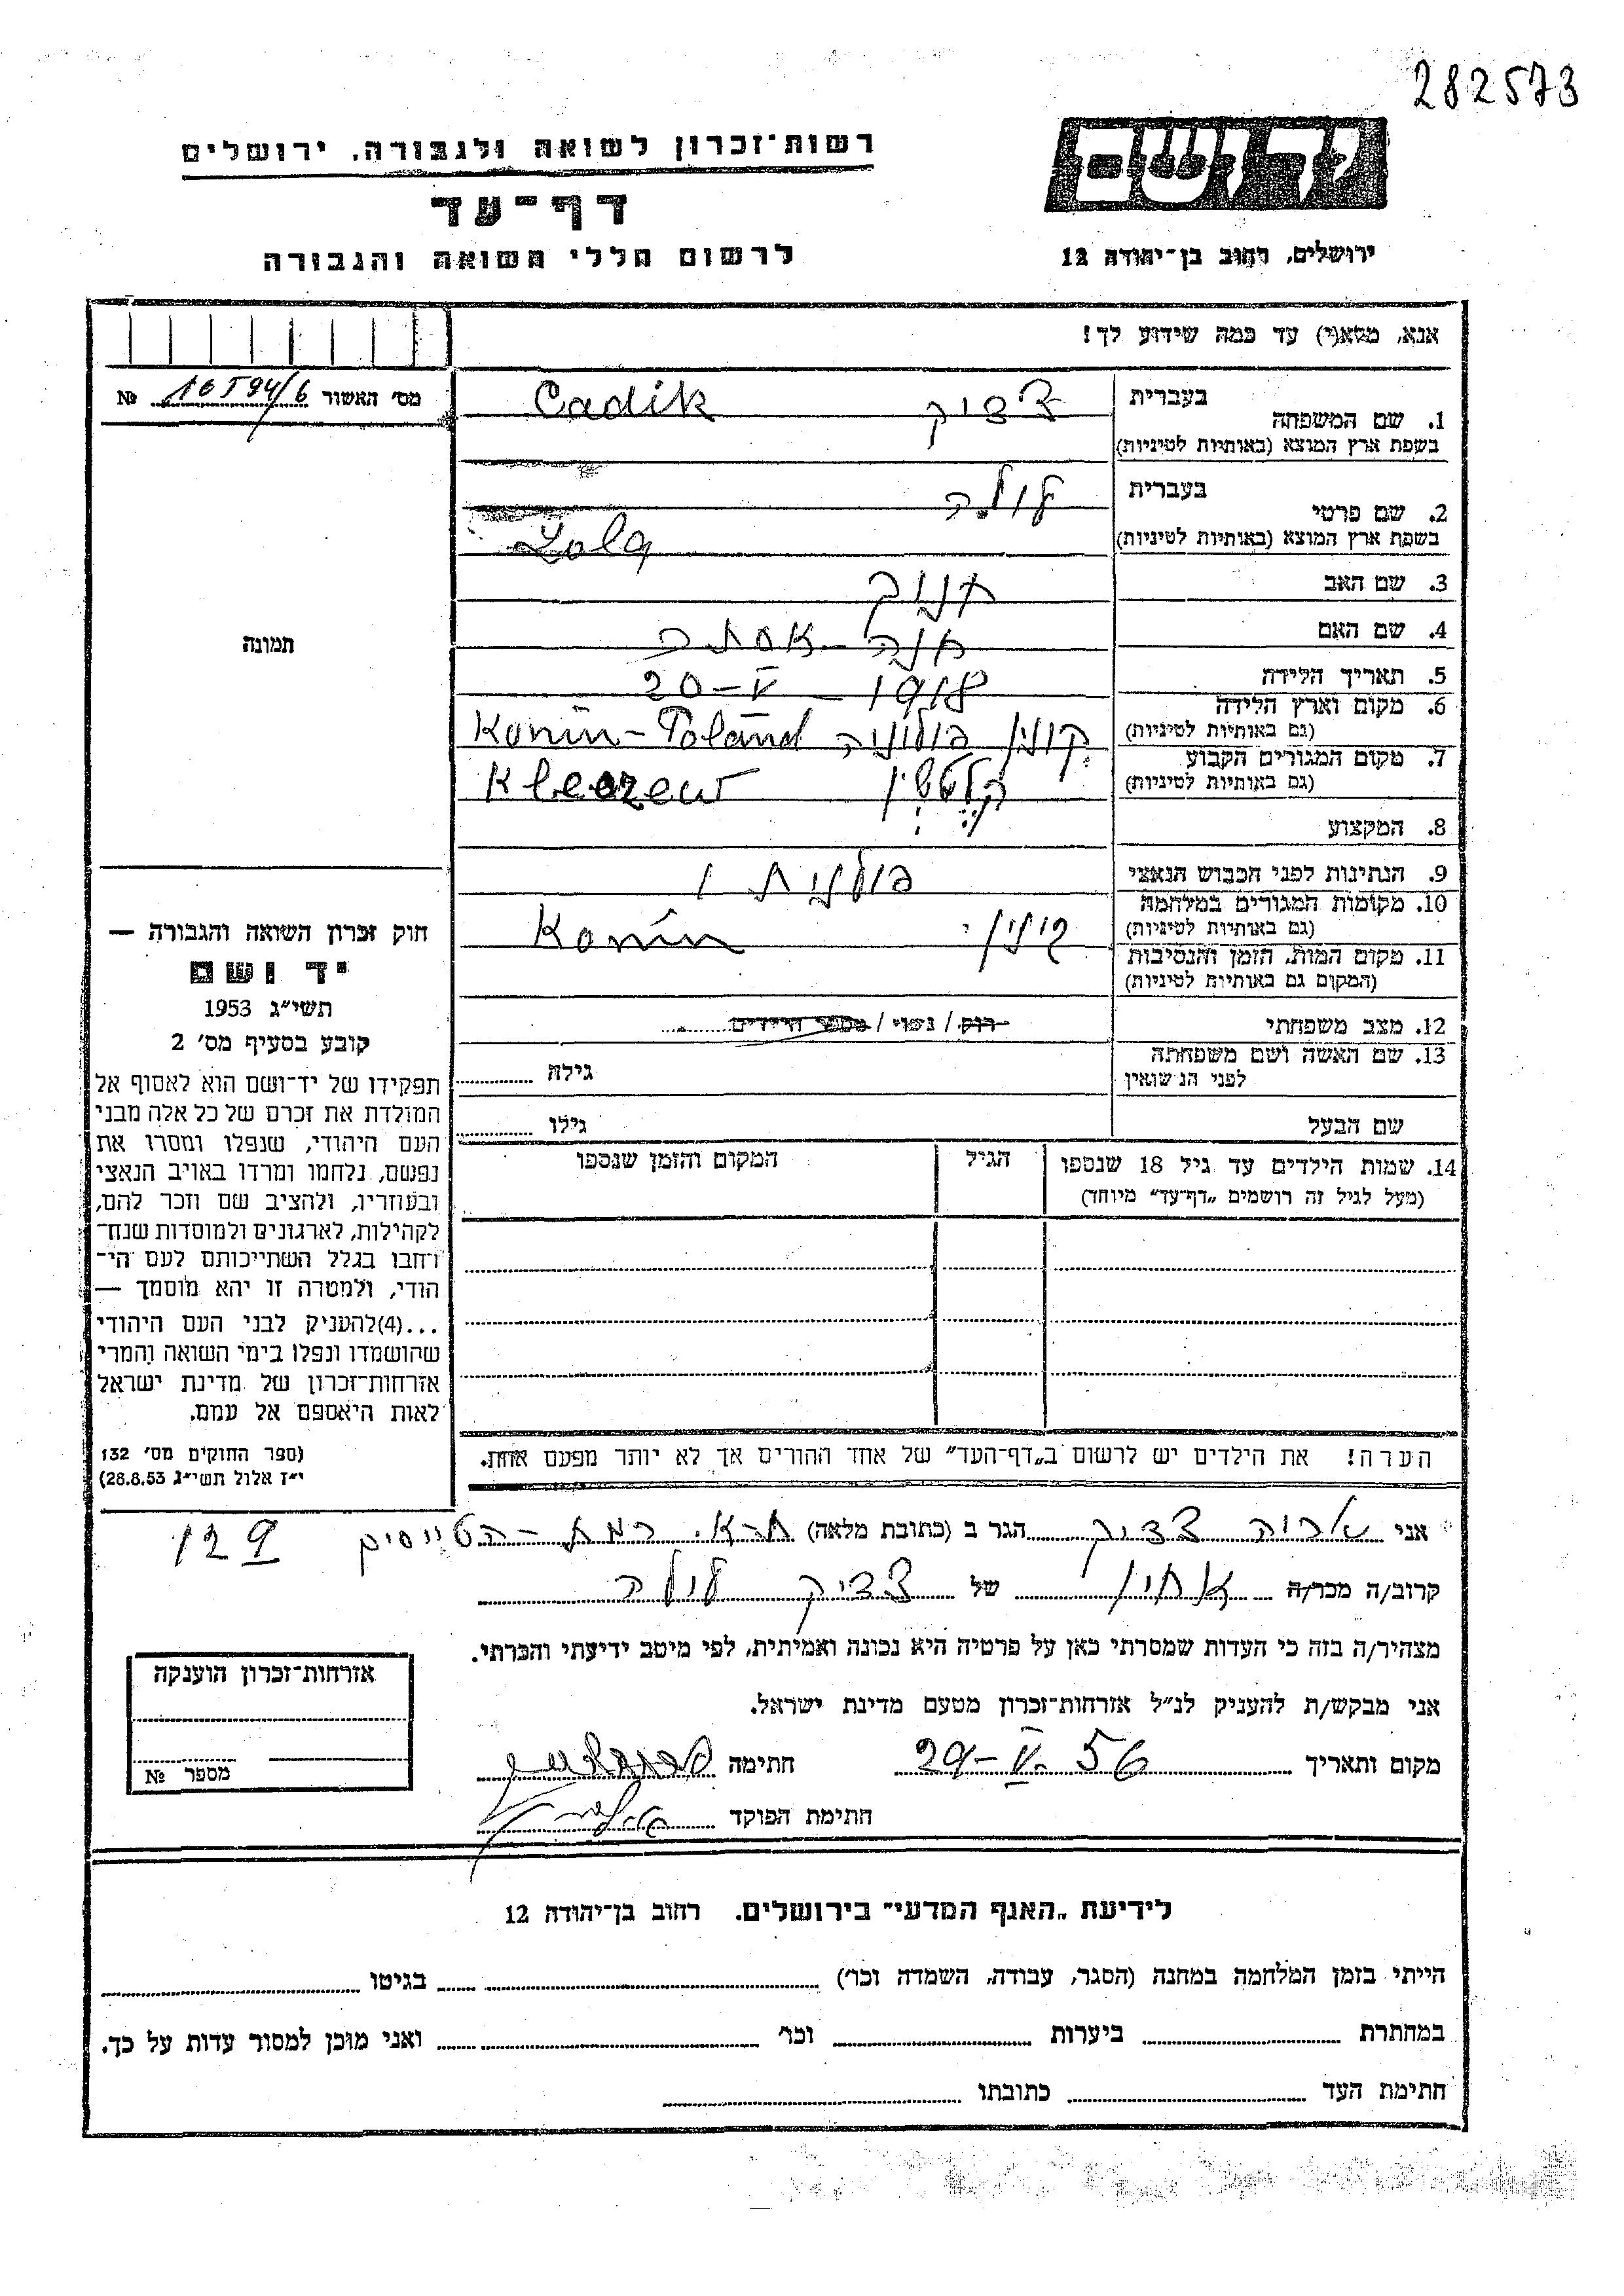 282573
יד ושם
רשות־זכרון לשואה ולגבורה, ירושלים
דף־עד
לרשום חללי השואה והגבורה
ירושלים, רחוב בן־יהודה 12
אנא, מלא(י) עד כמה שידוע לך!
מס׳ האשור № 16594/6
תמונה
בעברית
1. שם המשפחה צדיק Cadik
בשפת ארץ המוצא (באותיות לטיניות)
בעברית לולה
2. שם פרטי
בשפת ארץ המוצא (באותיות לטיניות) Lola
3. שם האב חנוך
4. שם האם חנה-אסתר
5. תאריך הלידה 20-V-1918
6. מקום וארץ הלידה
(גם באותיות לטיניות) קונין פולוניה Konin-Poland
7. מקום המגורים הקבוע
(גם באותיות לטיניות) Kleczew
8. המקצוע
9. הנתינות לפני הכבוש הנאצי פולנית
10. מקומות המגורים במלחמה
(גם באותיות לטיניות) קונין Konin
11. מקום המות, הזמן והנסיבות
(המקום גם באותיות לטיניות)
12. מצב משפחתי רוק / נשוי / מספר הילדים
13. שם האשה ושם משפחתה
לפני הנשואין גילה
שם הבעל גילו
14. שמות הילדים עד גיל 18 שנספו הגיל המקום והזמן שנספו
(מעל לגיל זה רושמים „דף־עד״ מיוחד)
הערה! את הילדים יש לרשום ב„דף־העד״ של אחד ההורים אך לא יותר מפעם אחת.
חוק זכרון השואה והגבורה —
יד ושם
תשי״ג 1953
קובע בסעיף מס׳ 2
תפקידו של יד־ושם הוא לאסוף אל
המולדת את זכרם של כל אלה מבני
העם היהודי, שנפלו ומסרו את
נפשם, נלחמו ומרדו באויב הנאצי
ובעוזריו, ולהציב שם וזכר להם,
לקהילות, לארגונים ולמוסדות שנח־
רחבו בגלל השתייכותם לעם הי־
הודי, ולמטרה זו יהא מוסמך —
...(4)להעניק לבני העם היהודי
שהושמדו ונפלו בימי השואה והמרי
אזרחות־זכרון של מדינת ישראל
לאות היאספם אל עמם.
(ספר החוקים מס׳ 132
י״ז אלול תשי״ג 28.8.53)
אני צדיק הגר ב (כתובת מלאה) ת-א. רמת-הטייסים 129
קרוב/ה מכר/ה אחיו של צדיק לולה
מצהיר/ה בזה כי העדות שמסרתי כאן על פרטיה היא נכונה ואמיתית, לפי מיטב ידיעתי והכרתי.
אני מבקש/ת להעניק לנ״ל אזרחות־זכרון מטעם מדינת ישראל.
מקום ותאריך 29-V.56 חתימה
חתימת הפוקד
אזרחות־זכרון הוענקה
מספר №
לידיעת „האגף המדעי״ בירושלים. רחוב בן־יהודה 12
הייתי בזמן המלחמה במחנה (הסגר, עבודה, השמדה וכו׳) בגיטו
במחתרת ביערות וכו׳ ואני מוכן למסור עדות על כך.
חתימת העד כתובתו